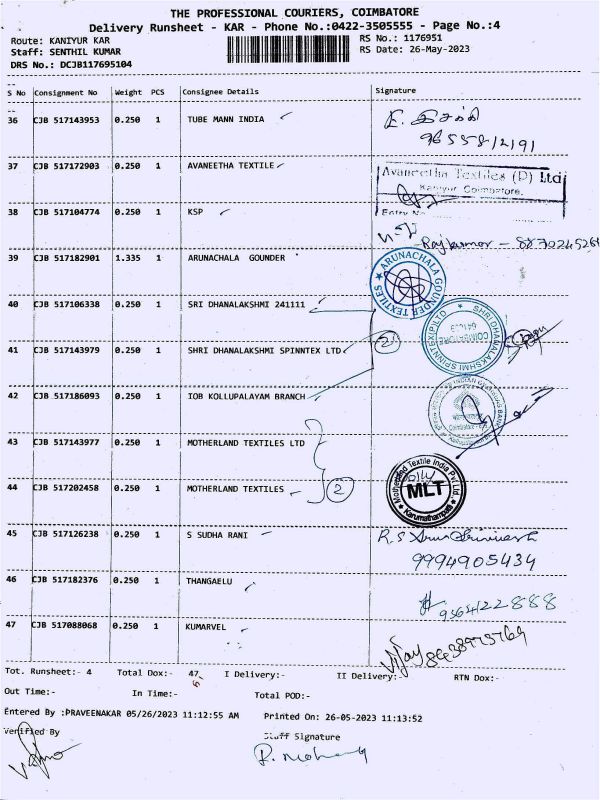 THE PROFESSIONAL COURIERS, COIMBATORE
Delivery Runsheet - KAR - Phone No.:0422-3505555 - Page No.:4
Route: KANIYUR KAR
RS No.: 1176951
Staff: SENTHIL KUMAR
RS Date: 26-May-2023
DRS No.: DCJB117695104
S No Consignment No Weight PCS Consignee Details Signature
36 CJB 517143953 0.250 1 TUBE MANN INDIA
37 CJB 517172903 0.250 1 AVANEETHA TEXTILE
Avaneetha Textiles (P) Ltd
Kaniyur Coimbatore.
Entry No
38 CJB 517104774 0.250 1 KSP
Rajkumar -
39 CJB 517182901 1.335 1 ARUNACHALA GOUNDER
ARUNACHALA GOUNDER TEXTILES
40 CJB 517106338 0.250 1 SRI DHANALAKSHMI 241111
SHRI DHANALAKSHMI SPINNTEX (P) LTD
COIMBATORE
41 CJB 517143979 0.250 1 SHRI DHANALAKSHMI SPINNTEX LTD 2
42 CJB 517186093 0.250 1 IOB KOLLUPALAYAM BRANCH
43 CJB 517143977 0.250 1 MOTHERLAND TEXTILES LTD
Motherland Textile India Pvt Ltd
MLT
Karumathampatti
44 CJB 517202458 0.250 1 MOTHERLAND TEXTILES 2
45 CJB 517126238 0.250 1 S SUDHA RANI
9994905434
46 CJB 517182376 0.250 1 THANGAELU
9364122888
47 CJB 517088068 0.250 1 KUMARVEL
Vijay
Tot. Runsheet:- 4 Total Dox:- 47 I Delivery:- II Delivery:- RTN Dox:-
Out Time:- In Time:- Total POD:-
Entered By :PRAVEENAKAR 05/26/2023 11:12:55 AM Printed On: 26-05-2023 11:13:52
Verified By Staff Signature